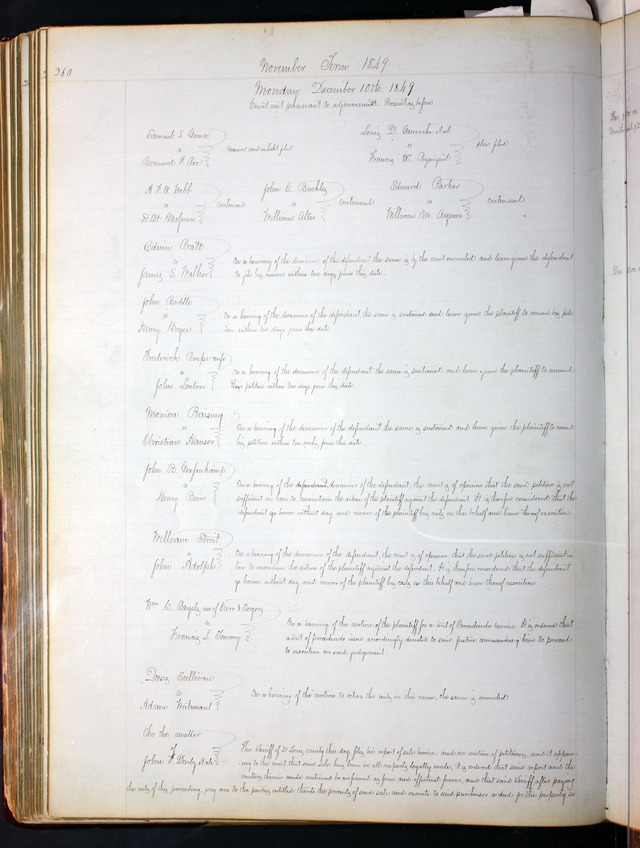 260
November Term 1849
Monday December 10th 1849
Court met pursuant to adjournment. Present as before
Samuel S.
vs
Bernard F.
answer and exhibit filed
Louis D. et al
vs
Francis W.
plea filed
A. F. W. Webb
vs
St Bt
continued
John C. Buckley
vs
William Alter
continued
Edward Parker
vs
William M.
continued
Edwin Pratt
vs
James S. Walker
On a hearing of the demurrer of the defendant the same is by the court overruled and leave given the defendant
to file his answer within ten days from this date.
John Biddle
vs
Henry Boyer
On a hearing of the demurrer of the defendant the same is sustained and leave given the plaintiff to amend his peti-
tion within ten days from this date
Frederick wife
vs
John
On a hearing of the demurrer of the defendant the same is sustained and leave given the plaintiff to amend
petition within ten days from this date
Monica Raising
vs
Christian Hauser
On a hearing of the demurrer of the defendant the same is sustained and leave given the plaintiff to amend
his petition within ten days from this date
John B.
vs
Henry
On a hearing of the demurrer of the defendant, the court is of opinion that the said petition is not
sufficient in law to maintain the action of the plaintiff against the defendant. It is therefore considered that the
defendant go hence without day and recover of the plaintiff his costs in this behalf and have thereof execution.
William Street
vs
John Adolph
On a hearing of the demurrer of the defendant, the court is of opinion that the said petition is not sufficient in
law to maintain the action of the plaintiff against the defendant. It is therefore considered that the defendant
go hence without day and recover of the plaintiff his costs in this behalf and have thereof execution
Wm C. use of Carr &
vs
Francis L.
On a hearing of the motion of the plaintiff for a writ of Procedendo herein. It is ordered that
a writ of procedendo issue accordingly directed to said justice commanding him to proceed
to execution on said judgement.
Sullivan
vs
Adam
On a hearing of the motion to the costs in this cause, the same is overruled
In the matter
of
John F. Darby et al
The Sheriff of St Louis county this day files his report of sale herein, and on motion of petitioners, and it appear-
ing to the court that said sale has been in all respects legally made, it is ordered that said report and the
matters therein made contained be confirmed as firm and effectual forever, and that said Sheriff after paying
the costs of this proceeding pay over to the parties entitled thereto the proceeds of said sale and execute to said purchasers a deed for the property so